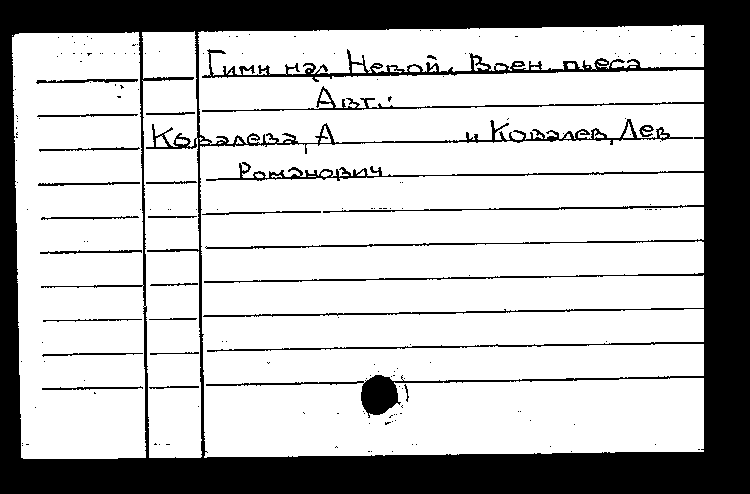 Гимн над Невой. Воен. пьеса
Авт.:
Ковалева, А и Ковалев, Лев
Романович